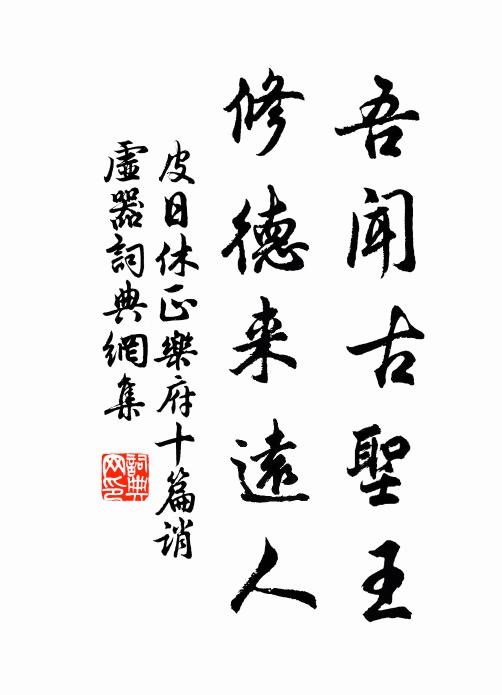 吾聞古聖王
修德来遠人
皮日休正樂府十篇誚
虛器詞典網集
詞典
网印